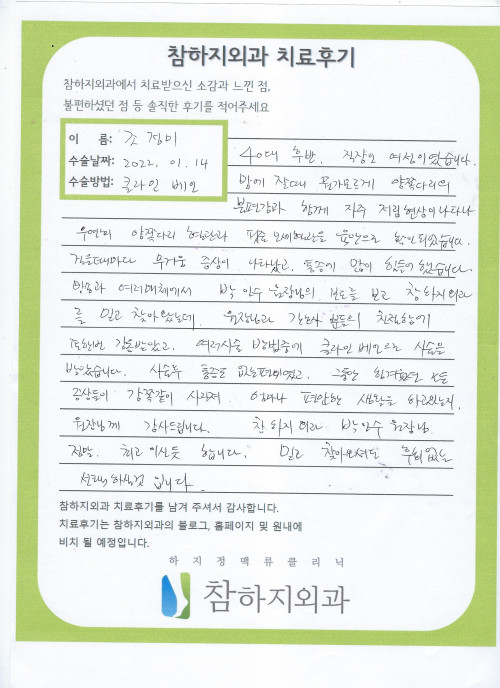 참하지외과 치료후기
참하지외과에서 치료받으신 소감과 느낀 점,
불편하셨던 점 등 솔직한 후기를 적어주세요
이 름: 조정미
수술날짜: 2022. 01. 14
수술방법: 클라인 베인
40대 후반, 직장인 여성이였습니다.
밤에 잘때 뭔가모르게 양쪽다리의
불편감과 함께 자주 저림현상이 나타나
우연히 양쪽다리 혈관과 모세혈관을 육안으로 확인되었습니다.
걸을때마다 무거운 증상이 나타났고, 통증에 많이 힘들어했습니다.
방송과 여러매체에서 박인수 원장님의 보도를 보고 참하지외과
를 믿고 찾아왔는데, 원장님과 간호사 분들의 친절함에
또한번 감동받았고, 여러시술 방법중에 클라인베인으로 시술을
받았습니다. 시술후 통증도 없는편이였고, 그동안 힘겨웠던 모든
증상들이 감쪽같이 사라져 편안한 생활을 하고있는지,
원장님께 감사드립니다. 참하지외과 박인수 원장님.
정말, 최고이신듯 합니다. 믿고 찾아오셔도 후회없는
선택하실것 입니다.
참하지외과 치료후기를 남겨 주셔서 감사합니다.
치료후기는 참하지외과의 블로그, 홈페이지 및 원내에
비치 될 예정입니다.
하지정맥류클리닉
참하지외과